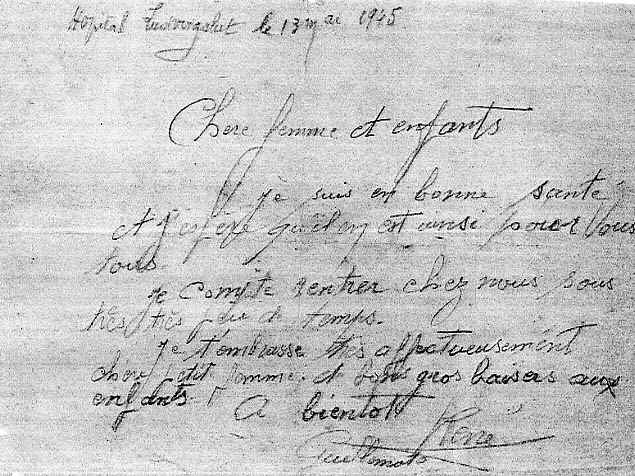 Hopital Ludwigslust le 13 mai 1945
Chere femme et enfants
je suis en bonne santé
et j'espère qu'il en est ainsi pour Vous
tous.
je compte rentrer chez nous sous
très très peu de temps.
je t'embrasse très affectueusement
chère petit femme, et bons gros baisers aux
enfants.
A bientot
René